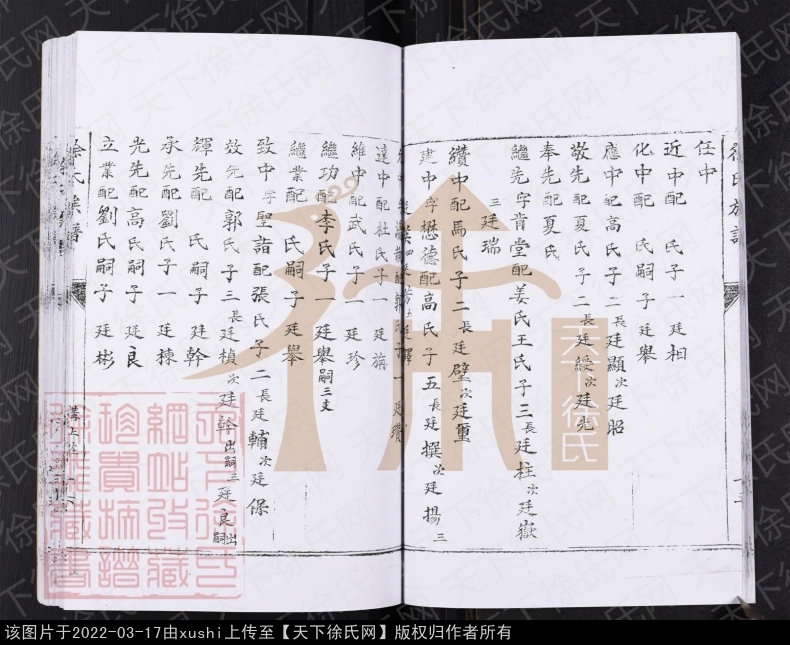 徐氏族譜
任中
近中配 氏子一廷相
化中配 氏嗣子廷舉
應中配高氏子二長廷顯次廷昭
敬先配夏氏子二長廷綬次廷先
奉先配夏氏
繼先字肯堂配姜氏王氏子三長廷柱次廷嶽
三廷瑞
纘中配馬氏子二長廷璧次廷璽
建中字懋德配高氏子五長廷撰次廷揚三
達中配杜氏子一廷旃
維中配武氏子一廷珍
繼功配李氏子一廷舉嗣三支
繼業配 氏嗣子廷舉
致中字聖詣配張氏子二長廷輔次廷保
效先配郭氏子三長廷楨次廷幹出嗣三廷良出嗣
輝先配 氏嗣子廷幹
承先配劉氏子一廷棟
光先配高氏嗣子廷良
立業配劉氏嗣子廷彬
徐氏族譜
天下徐氏
天下徐氏网
该图片于2022-03-17由xushi上传至【天下徐氏网】版权归作者所有